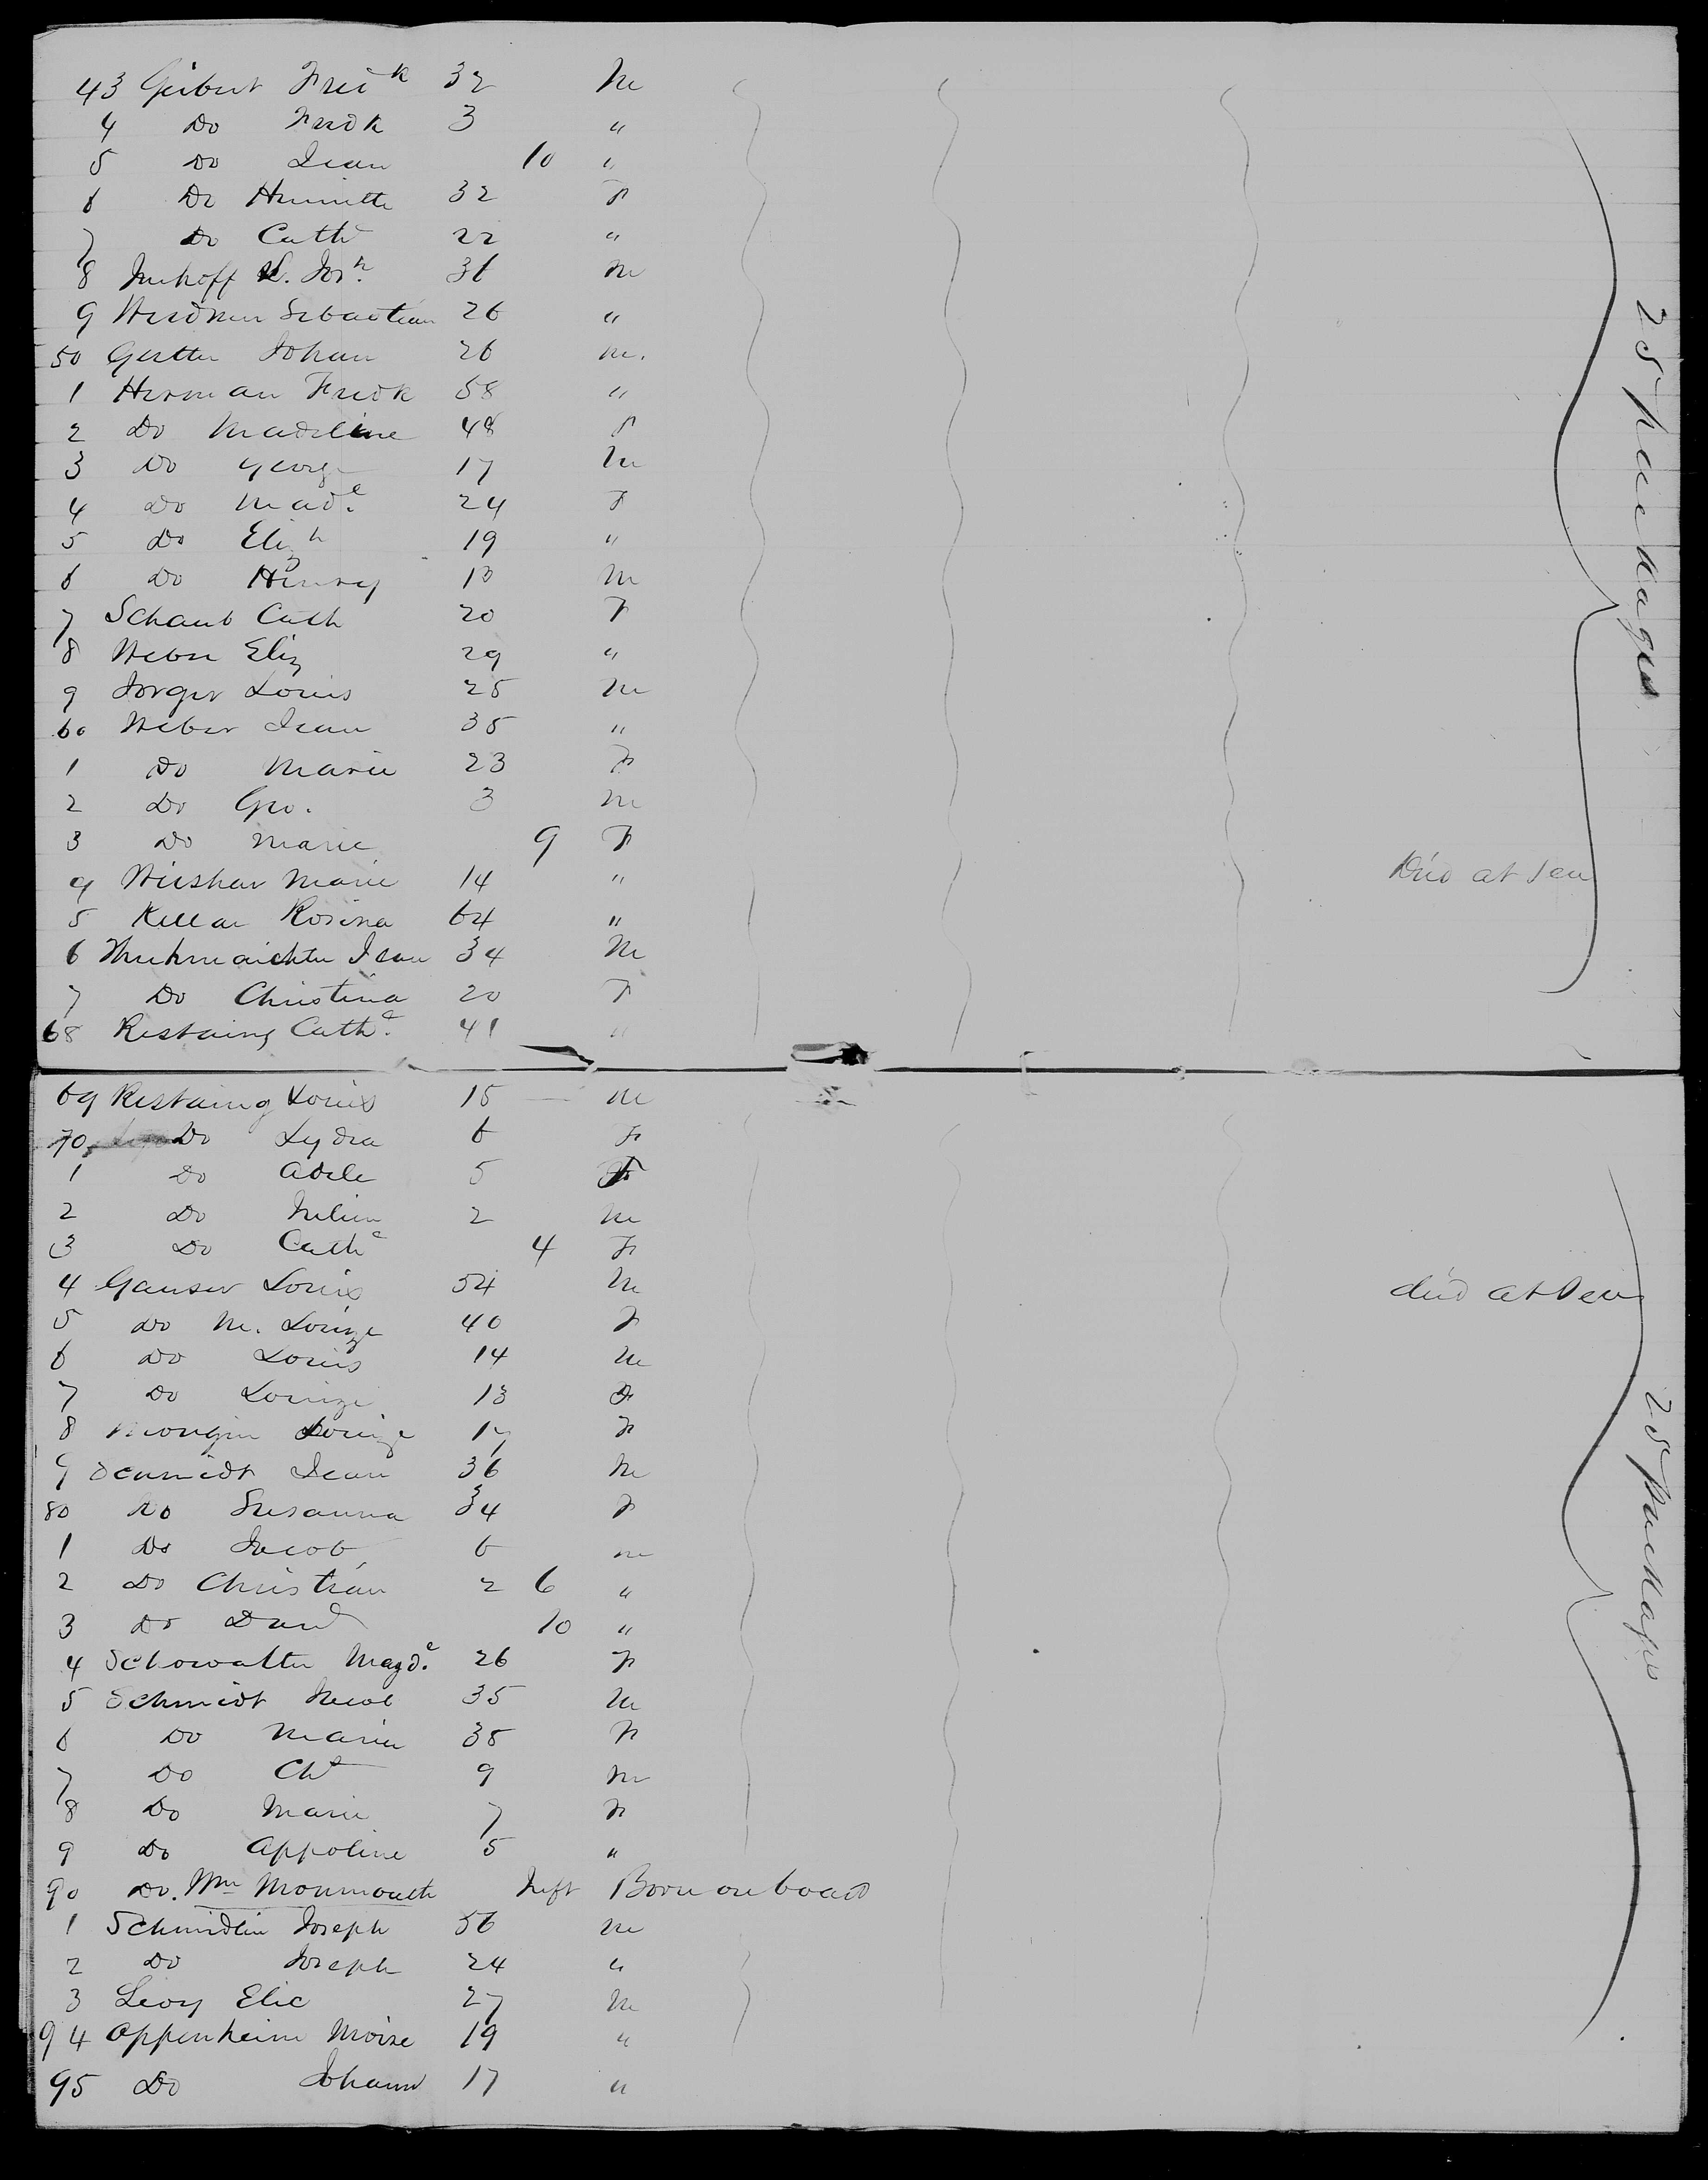 43 Geibert Fred k 32 M
4 Do Fredk 3 "
5 Do Jean 10 "
6 Do Henriette 32 F
7 Do Cath e 22 "
8 Imhoff L. Jos h. 36 M
9 Weidner Sebastian 26 "
50 Gertter Johan 26 M.
1 Herman Fredk 58 "
2 Do Madeline 48 F
3 Do George 17 M
4 Do Mad e. 24 F
5 Do Eliz h 19 "
6 Do Henry 13 M
7 Schaub Cath 20 F
8 Weber Eliz 29 "
9 Jorger Louis 25 M
60 Weber Jean 35 "
1 Do Marie 23 F
2 Do Geo. 3 M
3 Do Marie 9 F
4 Marie 14 " Died at Sea
5 Kellar Rosina 64 "
6 Jean 34 M
7 Do Christina 20 F
68 Restaing Cath e. 41 "
25 packages
69 Restaing Louis 15 — M
70 Do Lydia 6 F
1 Do Adele 5 F
2 Do 2 M
3 Do Cath e 4 F
4 Gauser Louis 54 M died at Sea
5 Do M. Louize 40 F
6 Do Louis 14 M
7 Do Louize 13 F
8 Mongin Louize 17 F
9 Schmidt Jean 36 M
80 Do Susanna 34 F
1 Do Jacob 6 M
2 Do Christian 2 6 "
3 Do David 10 "
4 Schowalter Magd e. 26 F
5 Schmidt Jacob 35 M
6 Do Maria 38 F
7 Do Ch t 9 M
8 Do Marie 7 F
9 Do Appoline 5 "
90 Do. Wm Monmouth Inft Born on board
1 Schmidlin Joseph 56 M
2 Do Joseph 24 "
3 Levy Elie 27 M
94 Oppenheim Moise 19 "
95 Do Johann 17 "
25 packages